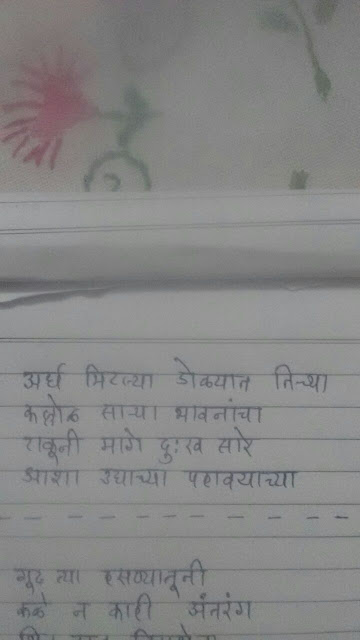 अर्ध मिटल्या डोळ्यात तिच्या
कल्लोळ साऱ्या भावनांचा
टाकूनी मागे दुःख सारे
आशा उद्याच्या पहावयाच्या
गूढ त्या हसण्यातूनी
कळे न काही अंतरंग